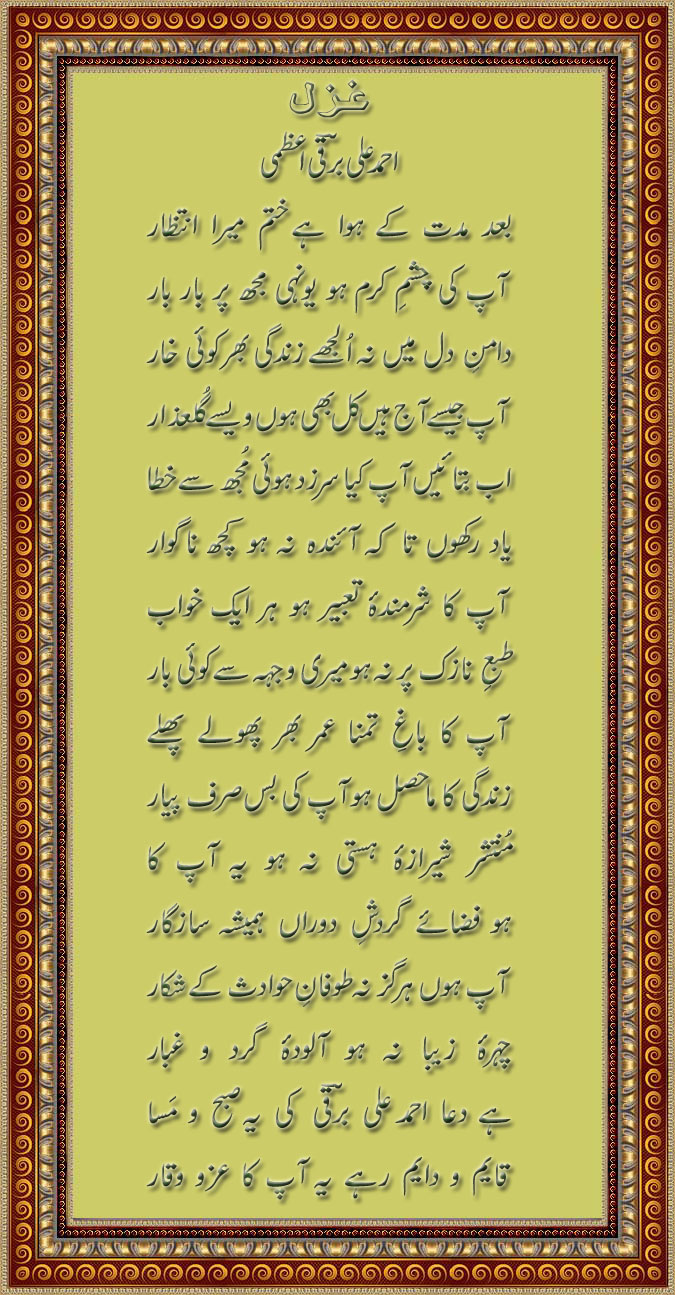 غزل
احمد علی برقیؔ اعظمی
بعد مدت کے ہوا ہے ختم میرا انتظار
آپ کی چشمِ کرم ہو یونہی مجھ پر بار بار
دامنِ دل میں نہ اُلجھے زندگی بھر کوئی خار
آپ جیسے آج ہیں کل بھی ہوں ویسے گُلعذار
اب بتائیں آپ کیا سرزد ہوئی مُجھ سے خطا
یاد رکھوں تا کہ آئندہ نہ ہو کچھ ناگوار
آپ کا شرمندۂ تعبیر ہو ہر ایک خواب
طبعِ نازک پر نہ ہو میری وجہہ سے کوئی بار
آپ کا باغِ تمنا عمر بھر پھولے پھلے
زندگی کا ماحصل ہو آپ کی بس صرف پیار
مُنتشر شیرازۂ ہستی نہ ہو یہ آپ کا
ہو فضائے گردشِ دوراں ہمیشہ سازگار
آپ ہوں ہرگز نہ طوفانِ حوادث کے شکار
چہرۂ زیبا نہ ہو آلودۂ گرد و غبار
ہے دعا احمد علی برقیؔ کی یہ صبح و مَسا
قایم و دایم رہے یہ آپ کا عزو وقار